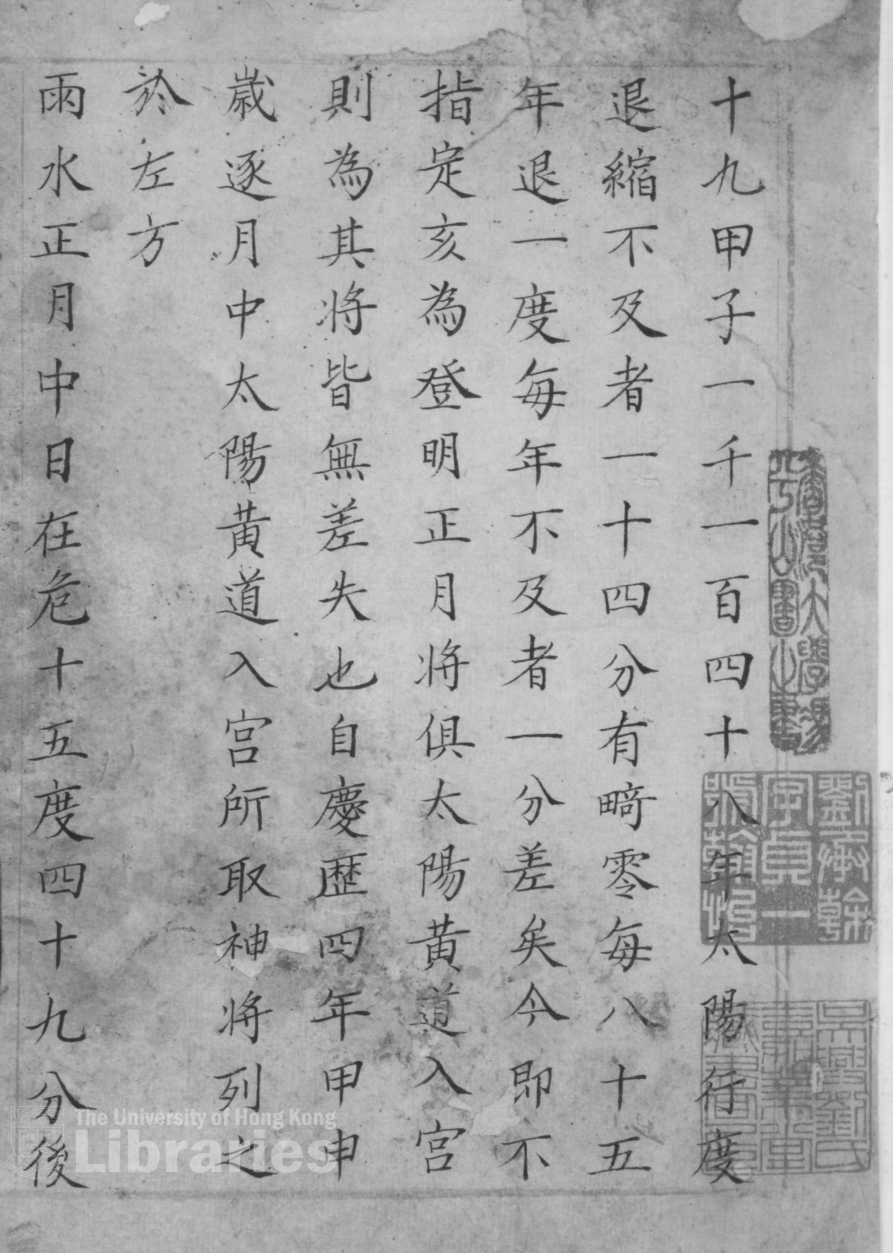 十九甲子一千一百四十八年太陽行度
退縮不及者一十四分有畸零每八十五
年退一度每年不及者一分差矣今即不
指定亥為登明正月将俱太陽黃道入宮
則為其将皆無差失也自慶歷四年甲申
歲逐月中太陽黃道入宮所取神将列之
於左方
雨水正月中日在危十五度四十九分後
劉承幹
字貞一
號翰怡
吳興劉氏
The University of Hong Kong
Libraries